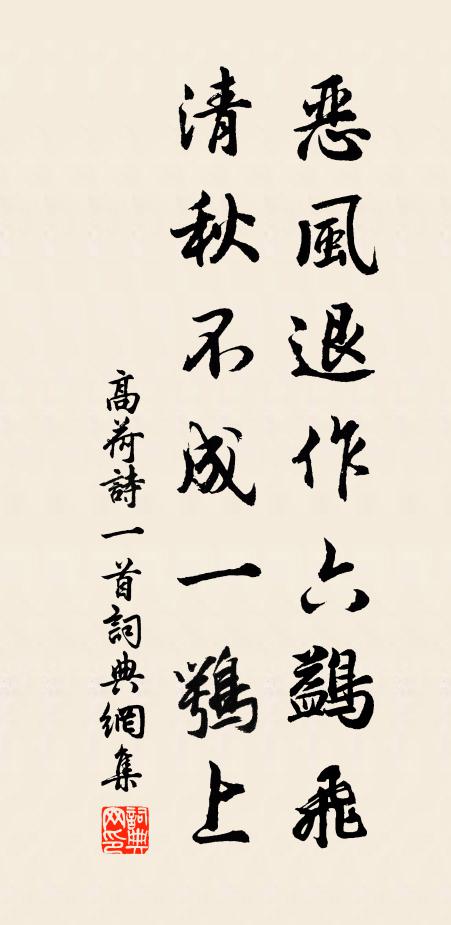 恶風退作六鷁飛
清秋不成一鶚上
高荷詩一首詞典網集
詞典网印